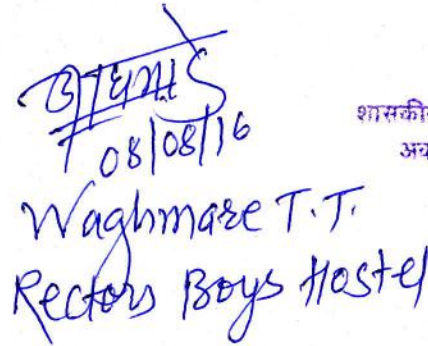 वाघमारे
08/08/16
शासकी
अव
Waghmare T.T.
Rectors Boys Hostel